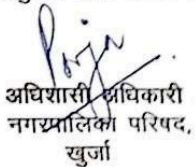 अधिशासी अधिकारी
नगरपालिका परिषद,
खुर्जा